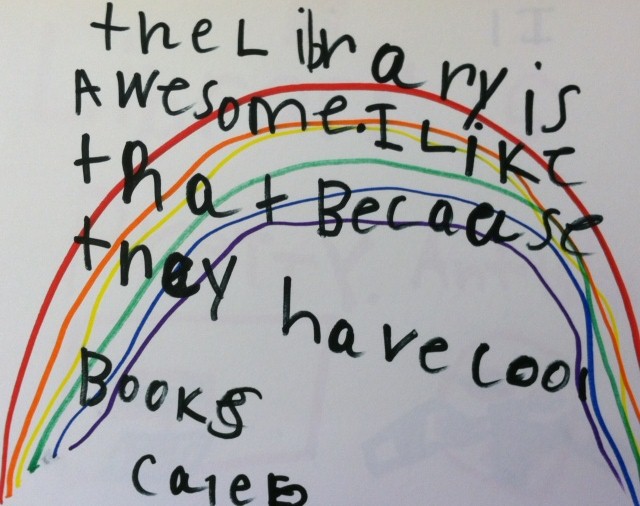 the Library is
Awesome. I Like
that Becaase
they have cool
Books
CaleB